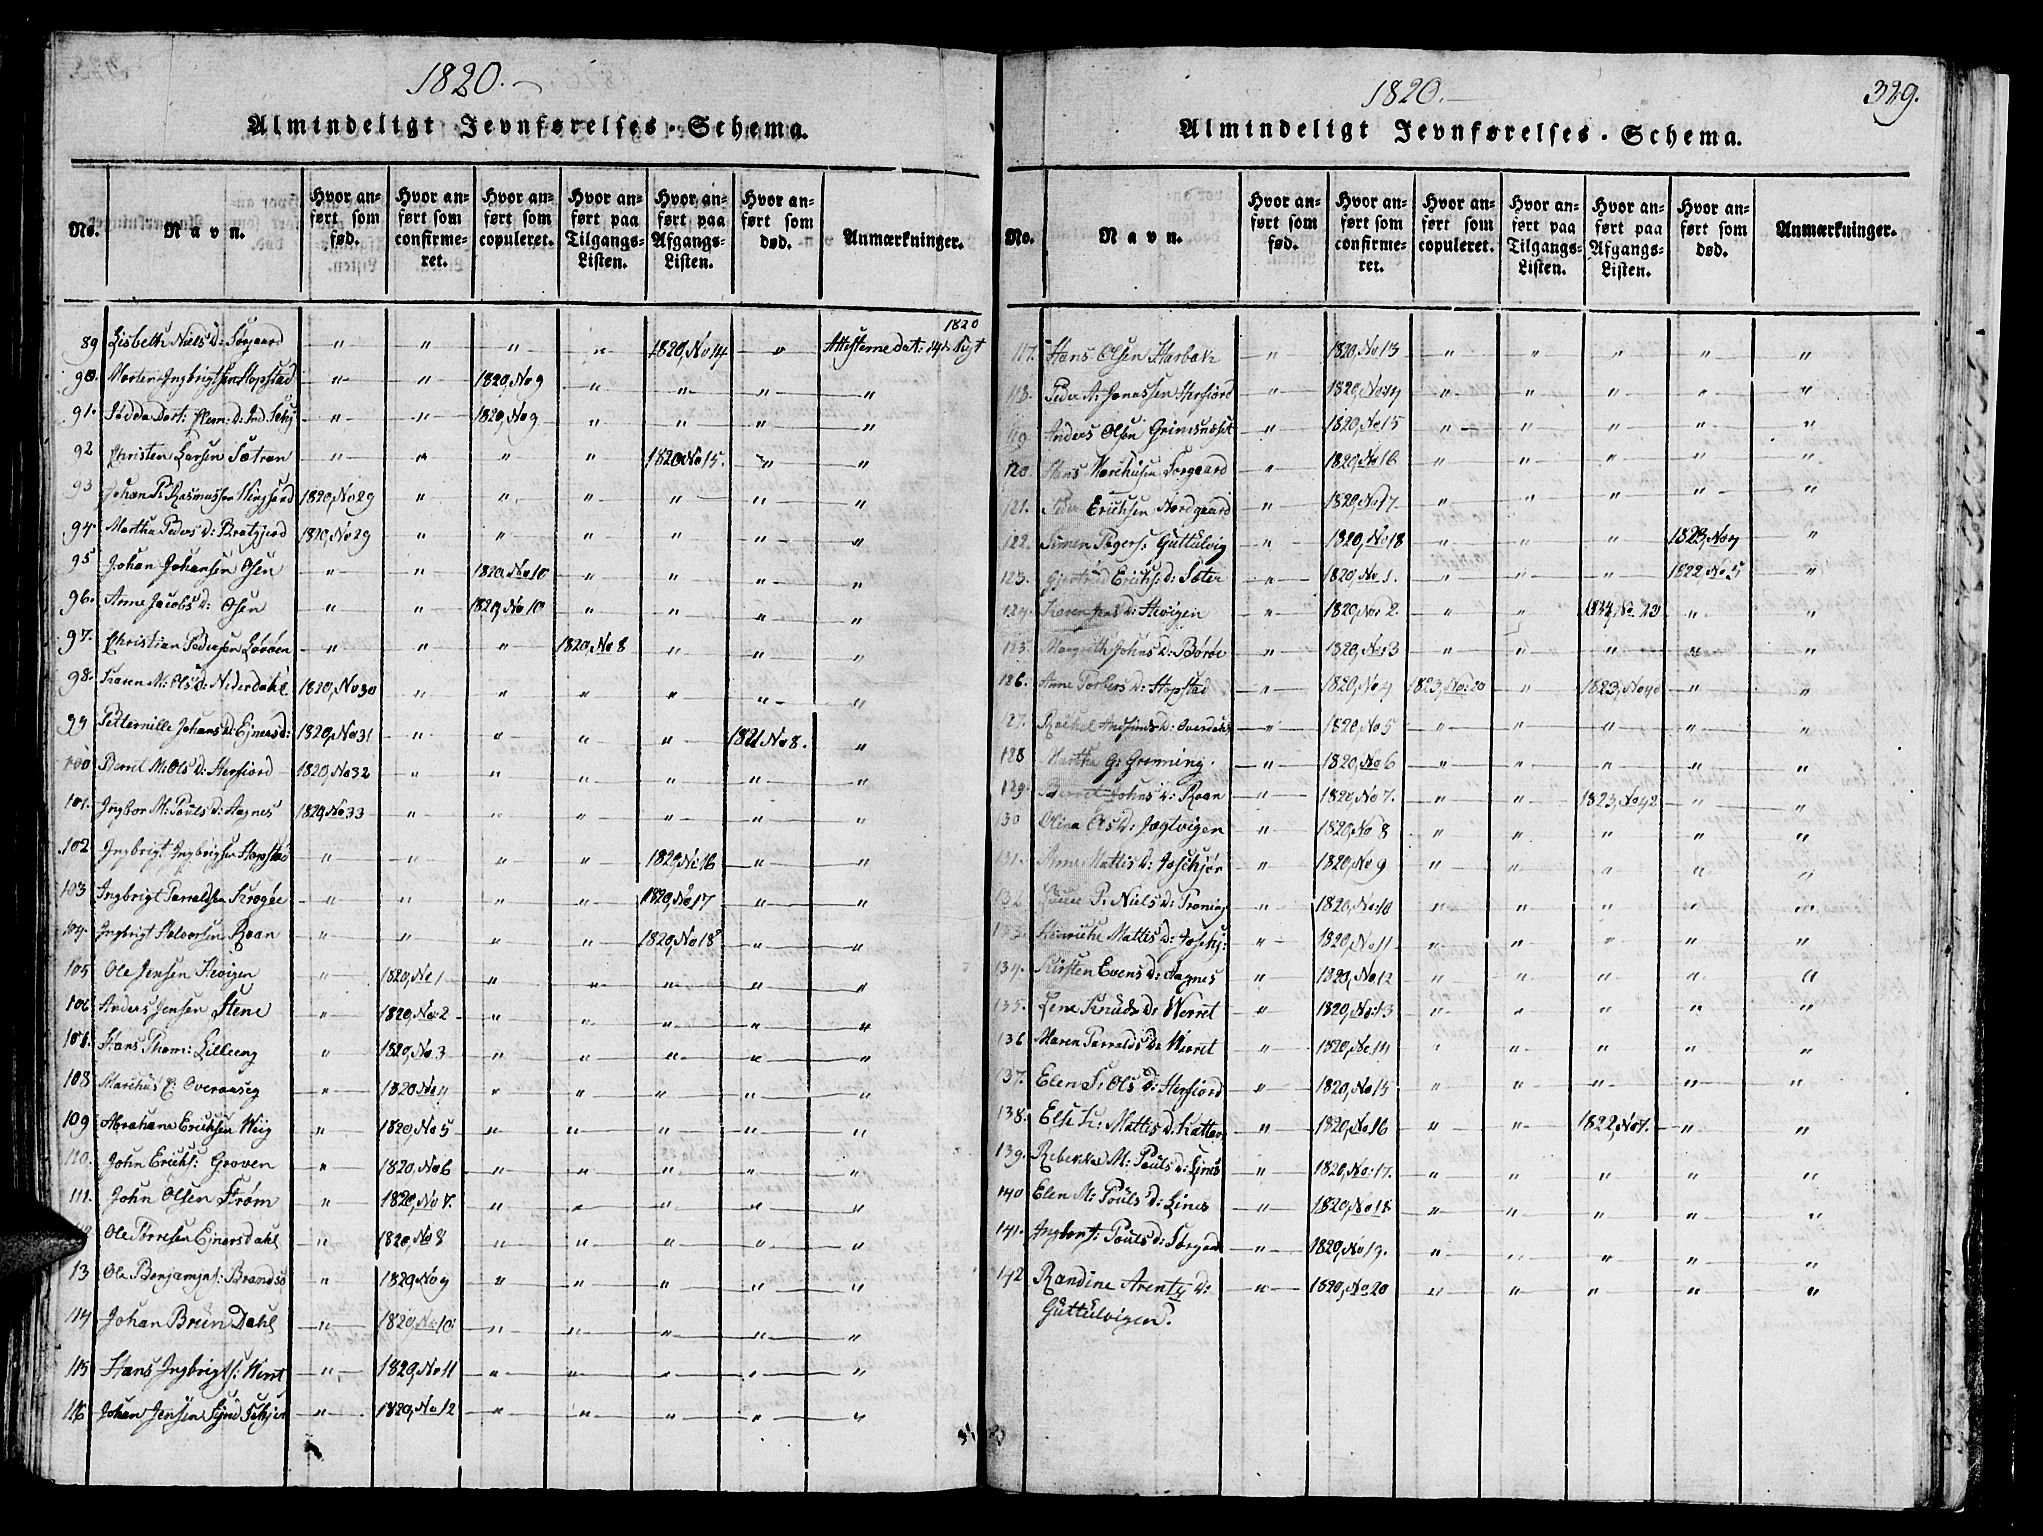 1820.
Almindeligt Jevnførelses-Schema.
No.
Navn.
Hvor anført som fød.
Hvor anført som confirmeret.
Hvor anført som copuleret.
Hvor anført paa Tilgangs-Listen.
Hvor anført paa Afgangs-Listen.
Hvor anført som død.
Anmærkninger.
1820
89 Lisbeth Niels d: Sørgaard " " " " 1820, No 14 "
90. Morten Ingbrigtsen Hopstad " " 1820, No 9 " " " "
91. " " 1820, No 9 " " " "
92 Christen Larsen Sætran " " " " 1820 No 15. " "
93 Johan P: Rasmussen 1820, No 29 " " " " " "
94. Martha Peders d: Bratgjerd 1820, No 29 " " " " " "
95 Johan Johansen Osen " " 1820, No 10 " " " "
96. Anne Jacobs d: Osen " " 1820, No 10 " " " "
97. Christian Pedersen Løvøen " " " 1820, No 8 " " "
98. Karen M: Ols d: Nederdahl 1820, No 30 " " " " " "
99 Petternille Johans d: Ejnersd: 1820, No 31 " " " " 1821 No 8. "
100 Berret M: Ols d: Herfiord 1820, No 32 " " " " " "
101. Ingbor M: Pouls d: Hagnes 1820, No 33 " " " " " "
102 Ingbrigt Ingbrigtsen Hopstad " " " " 1820, No 16 " "
103 Ingbrigt Parralsen Krogøe " " " " 1820, No 17 " "
104. Ingbrigt Halvorsen Roan " " " " 1820, No 18 " "
105 Ole Jensen Hevigen " 1820, No 1 " " " " "
106 Anders Jensen Stene " 1820, No: 2 " " " " "
107. Hans Thom: Lilleeng " 1820, No 3 " " " " "
108 Marchus E: Overaaseg " 1820 No 4 " " " " "
109 Abraham Ericksen Wiig " 1820, No 5 " " " " "
110. John Ericks: Groven " 1820, No 6 " " " " "
111. John Olsen Strøm " 1820, No 7. " " " " "
12 Ole Tørresen Ejnersdahl " 1820, No 8 " " " " "
13 Ole Benjamins: Brandsø " 1820, No 9 " " " " "
114 Johan Brun Dahl " 1820, No: 10 " " " " "
115 Hans Ingbrigts: Werret " 1820, No 11 " " " " "
116 Johan Jensen " 1820, No 12 " " " " "
1820.
329.
Almindeligt Jevnførelses-Schema.
No.
Navn.
Hvor anført som fød.
Hvor anført som confirmeret.
Hvor anført som copuleret.
Hvor anført paa Tilgangs-Listen.
Hvor anført paa Afgangs-Listen.
Hvor anført som død.
Anmærkninger.
117. Hans Olsen Harbak " 1820, No 13 " " " " "
118. Peder A: Jonassen Herfiord " 1820, No: 14 " " " " "
119 Anders Olsen " 1820, No 15 " " " " "
120. Hans Marchusen Sørgaard " 1820, No 16 " " " " "
121. Peder Ericksen Nordgaard " 1820, No 17 " " " " "
122. Simen Guttulvig " 1820, No 18 " " " 1823, No 7 "
123. Gjertrud Ericks: d: Sæter " 1820, No 1. " " " 1822, No 5 "
124. Karen Jens d: Hevigen " 1820, No: 2. " " 1834, No. 20 " "
125. Margreth Johns d: Børøe " 1820, No: 3 " " " " "
126. Anne Torbers d: Hopstad " 1820, No 4 1823, No: 20 " 1823, No 40 " "
127. Rachel d: Overdahl " 1820, No 5 " " " " "
128 Martha G: Grønning. " 1820, No 6 " " " " "
129. Berret Johns d: Roan " 1820, No 7. " " 1823, No 42 " "
130 Olina Ols d: Jægtvigen " 1820, No 8 " " " " "
131. Anne Mattis d: " 1820, No 9 " " " " "
132 P: Niels d: " 1820, No: 10 " " " " "
133. Heinriche Mattis d: " 1820, No 11 " " " " "
134. Kirsten Evens d: Hagnes " 1820, No 12 " " " " "
135. Lene Knuds d: Werret " 1820, No: 13 " " " " "
136 Maren Parralds d: Werret " 1820, No 14 " " " " "
137. Elen S: Ols d: Herfiord " 1820, No 15 " " " " "
138. Else K: Mattis d: " 1820, No 16 " " 1822, No 7. " "
139. Rebekka M: Pouls d: Lines " 1820, No: 17. " " " " "
140 Elen M: Pouls d: Lines " 1820, No 18 " " " " "
141. Ingbor Pouls d: Sørgaard " 1820, No 19. " " " " "
142 Randine Arenty d: " 1820, No 20 " " " " "
Guttulvigen.